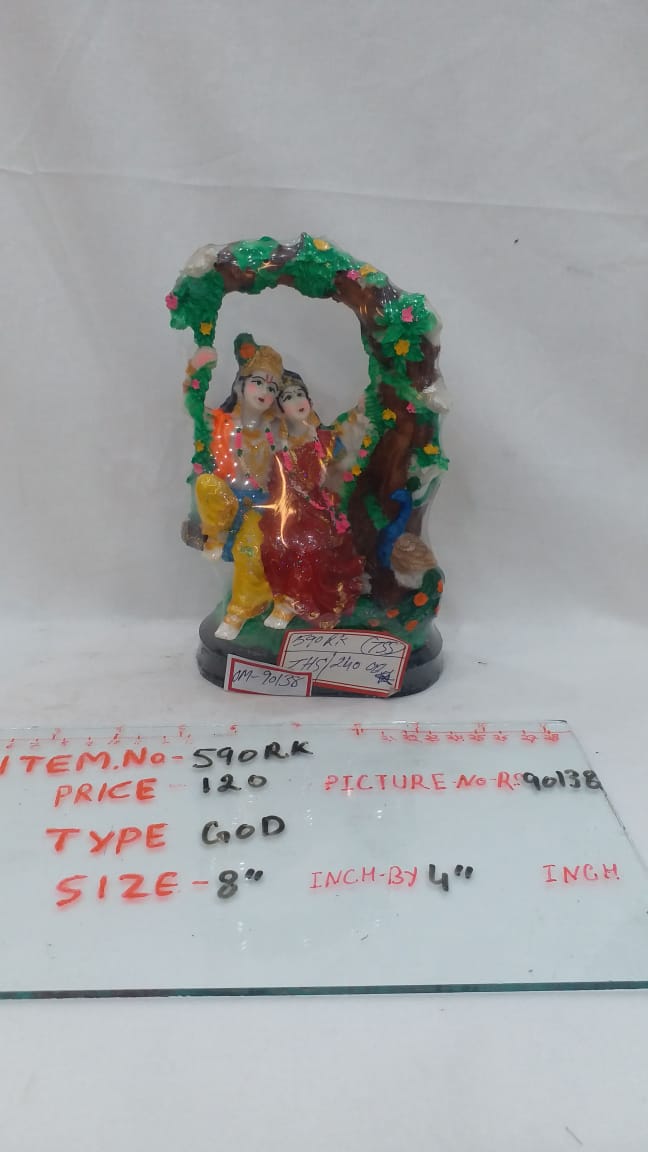 590RK (755)
THS/240
OM-90138
ITEM.No-590RK
PRICE - 120 PICTURE-No-RS90138
TYPE GOD
SIZE-8" INCH-BY 4" INCH